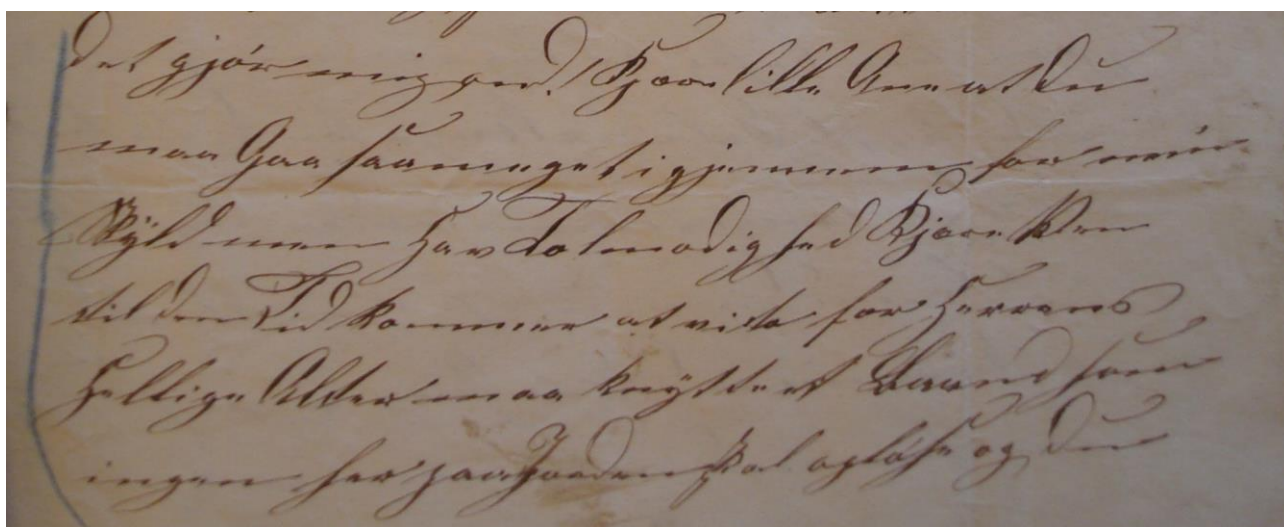 Det gjör mig ond! Kjære lille Ane at Du
maa Gaa saameget igjennem for min
Skyld men Hav Tolmodighed Kjære Ven
til den Tid kommer at vi to for Herrens
Hellige Alter maa knytte et Baand som
ingen her paa Jorden skal opløse og Du